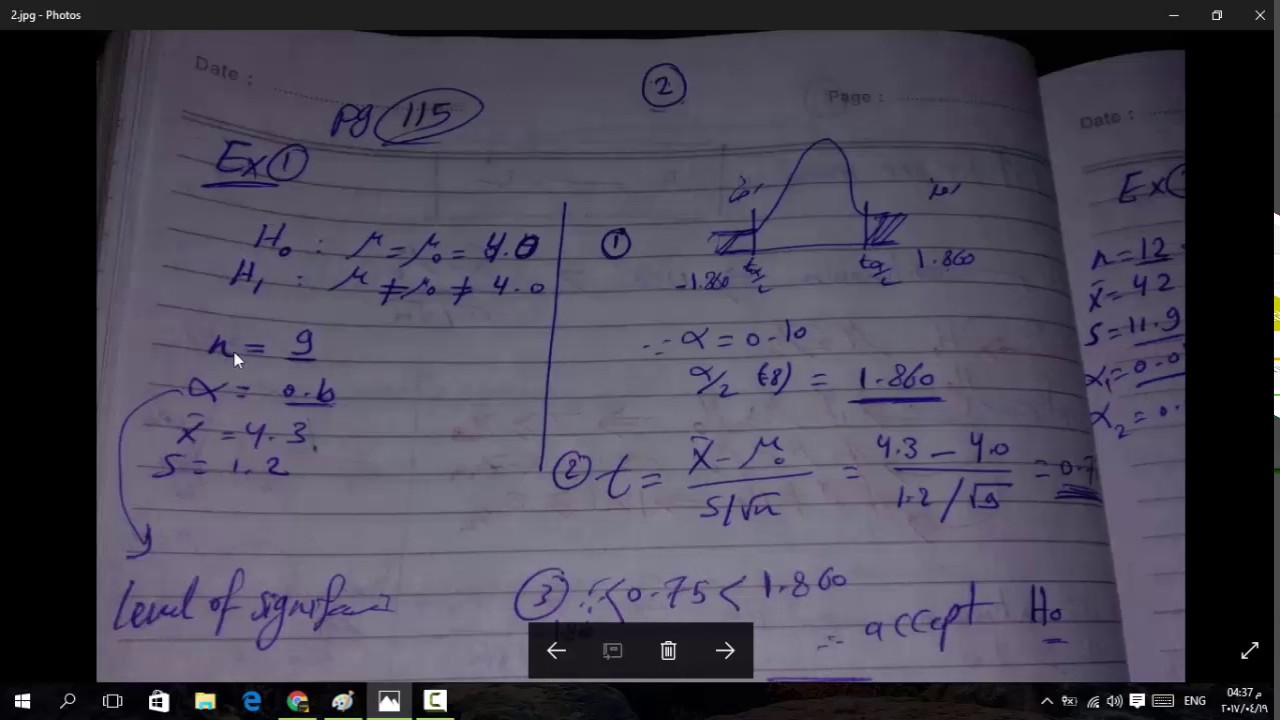 2.jpg - Photos
Date :
2
Page :
pg 115
Ex 1
H₀ : μ = μ₀ = 4.0
H₁ : μ ≠ μ₀ ≠ 4.0
n = 9
α = 0.10
x̄ = 4.3
S = 1.2
Level of
1
-1.860 tα/2 tα/2 1.860
∵ α = 0.10
α/2 (8) = 1.860
2 t = x̄ - μ₀ / S/√n = 4.3 - 4.0 / 1.2/√9 = 0.7
3 ∵ < 0.75 < 1.860
∴ accept H₀
Date :
Ex
n = 12
x̄ = 42
S = 11.9
α₁ = 0.0
α₂ = 0.
ENG
04:37 م
٢٠١٧/٠٤/١٩